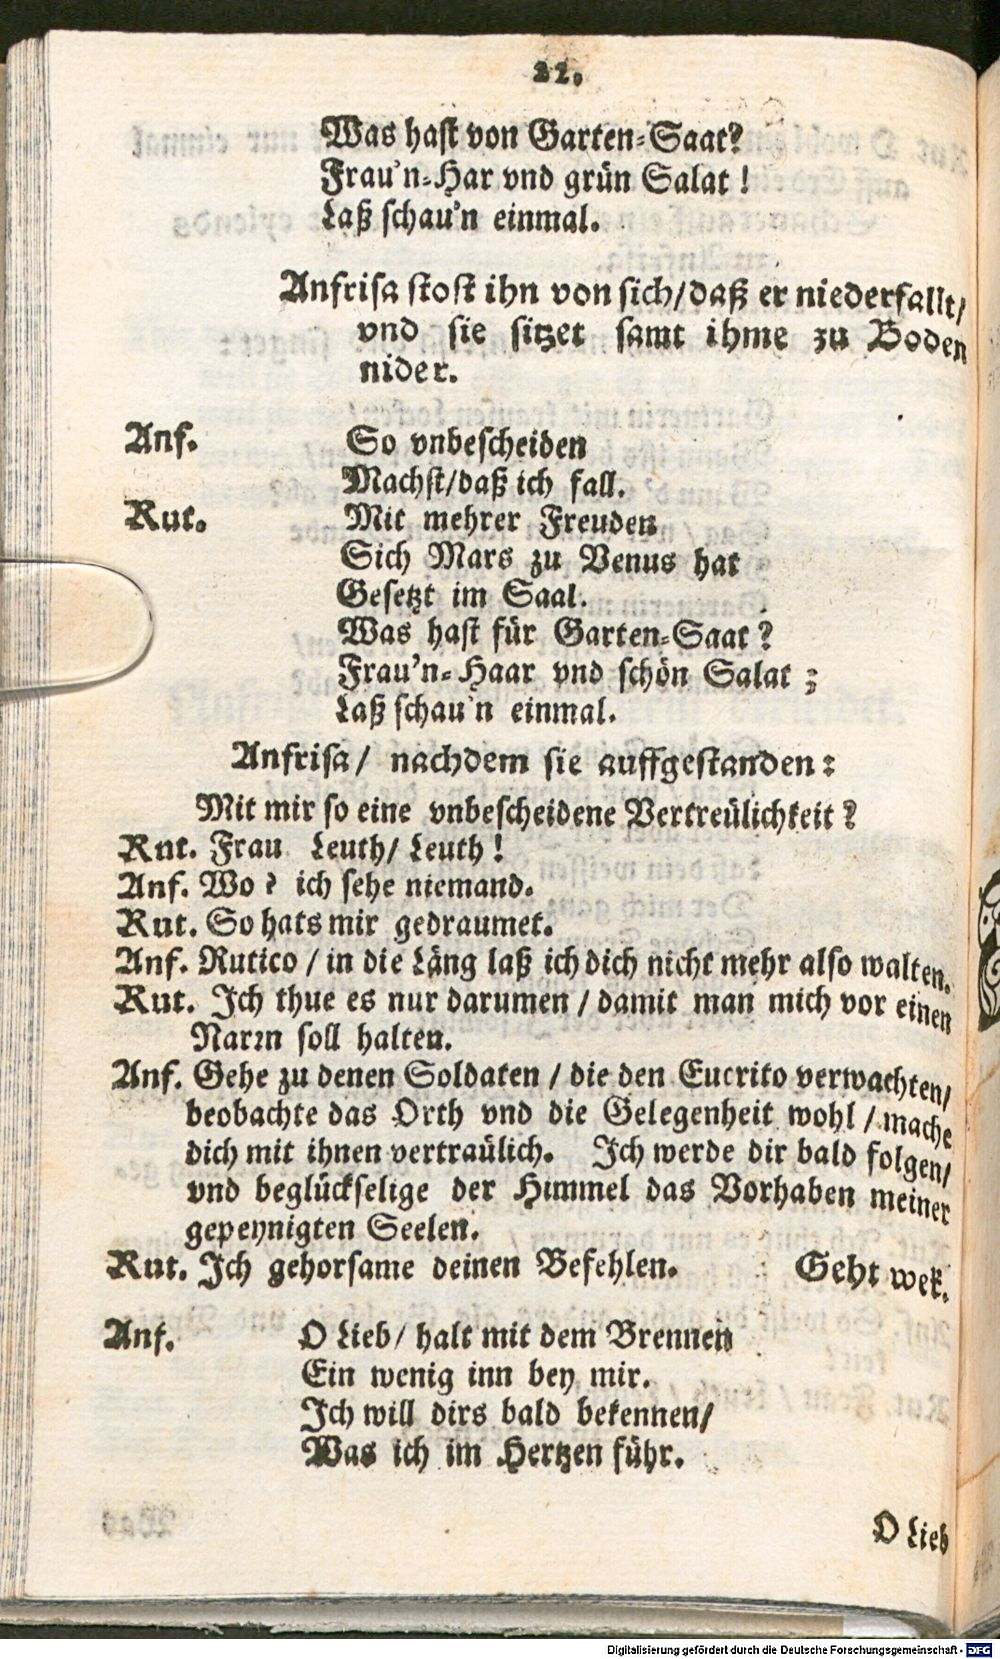 22.
Was hast von Garten-Saat?
Frau'n-Har vnd grün Salat!
Laß schau'n einmal.
Anfrisa stost ihn von sich/daß er niederfallt/
vnd sie sitzet samt ihme zu Boden
nider.
Anf. So vnbescheiden
Machst/daß ich fall.
Rut. Mit mehrer Freuden
Sich Mars zu Venus hat
Gesetzt im Saal.
Was hast für Garten-Saat?
Frau'n-Haar vnd schön Salat;
Laß schau'n einmal.
Anfrisa/ nachdem sie auffgestanden:
Mit mir so eine vnbescheidene Vertreülichkeit?
Rut. Frau Leuth/ Leuth!
Anf. Wo? ich sehe niemand.
Rut. So hats mir gedraumet.
Anf. Rutico/ in die Läng laß ich dich nicht mehr also walten.
Rut. Ich thue es nur darumen/ damit man mich vor einen
Narꝛn soll halten.
Anf. Gehe zu denen Soldaten/ die den Eucrito verwachten/
beobachte das Orth vnd die Gelegenheit wohl/ mache
dich mit ihnen vertraülich. Ich werde dir bald folgen/
vnd beglückselige der Himmel das Vorhaben meiner
gepeynigten Seelen.
Rut. Ich gehorsame deinen Befehlen. Geht wek.
Anf. O Lieb/ halt mit dem Brennen
Ein wenig inn bey mir.
Ich will dirs bald bekennen/
Was ich im Hertzen führ.
O Lieb
Digitalisierung gefördert durch die Deutsche Forschungsgemeinschaft - DFG